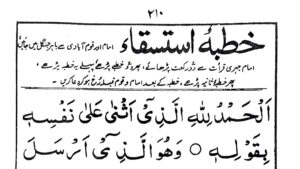 ۲۱۰
خطبۂ استسقاء امام اور قوم آبادی سے باہر جنگل میں جائیں
امام جہری قرأت سے دو رکعت پڑھائے، پھر دو خطبہ پڑھے، پہلے یہ خطبہ پڑھے،
پھر خطبۂ ثانیہ پڑھے، خطبہ کے بعد امام و قوم قبلہ رخ ہو کر دعا کریں۔
اَلْحَمْدُ لِلّٰهِ الَّذِیْ اَثْنٰی عَلٰی نَفْسِهٖ
بِقَوْلِهٖ ○ وَهُوَ الَّذِیْ اَرْسَلَ